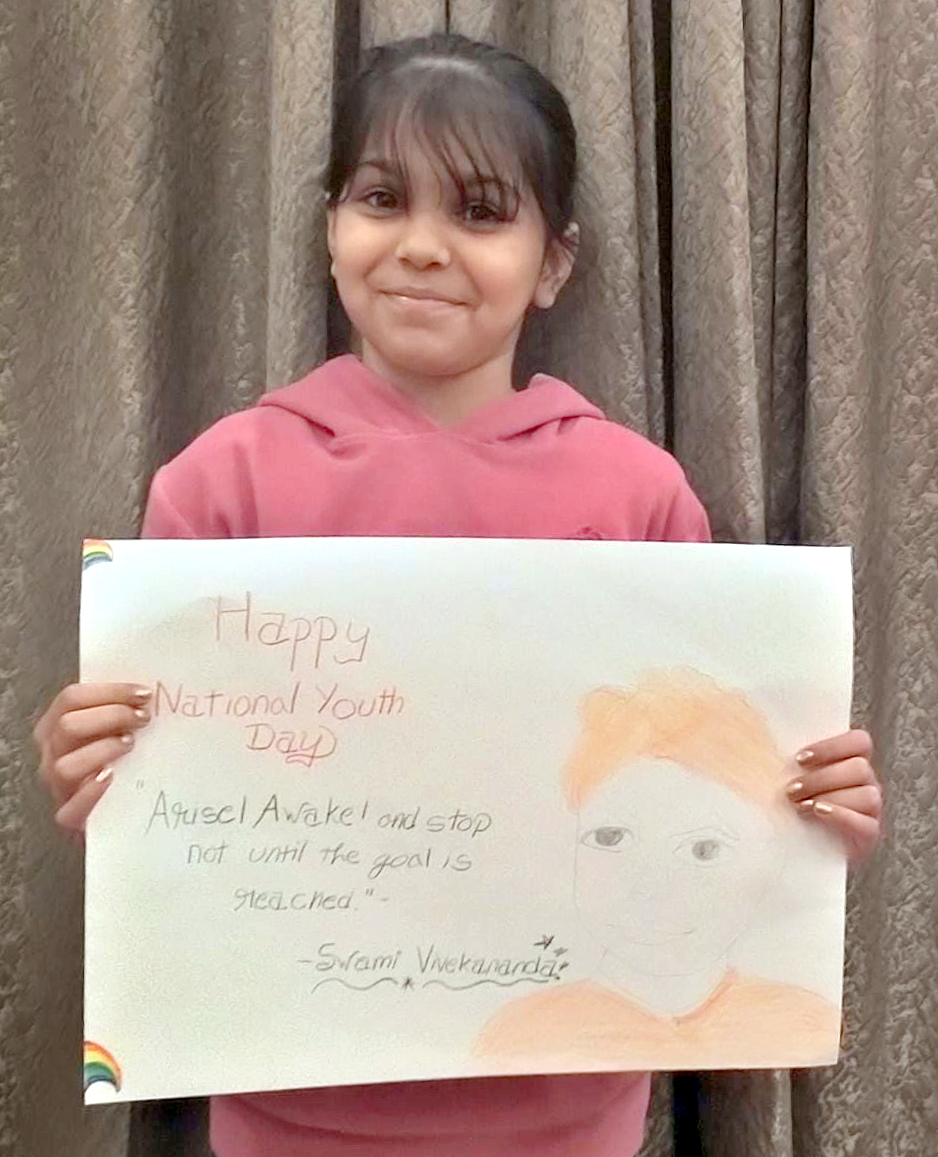 Happy
National Youth
Day
"Arise! Awake! and stop
not until the goal is
reached."-
-Swami Vivekananda